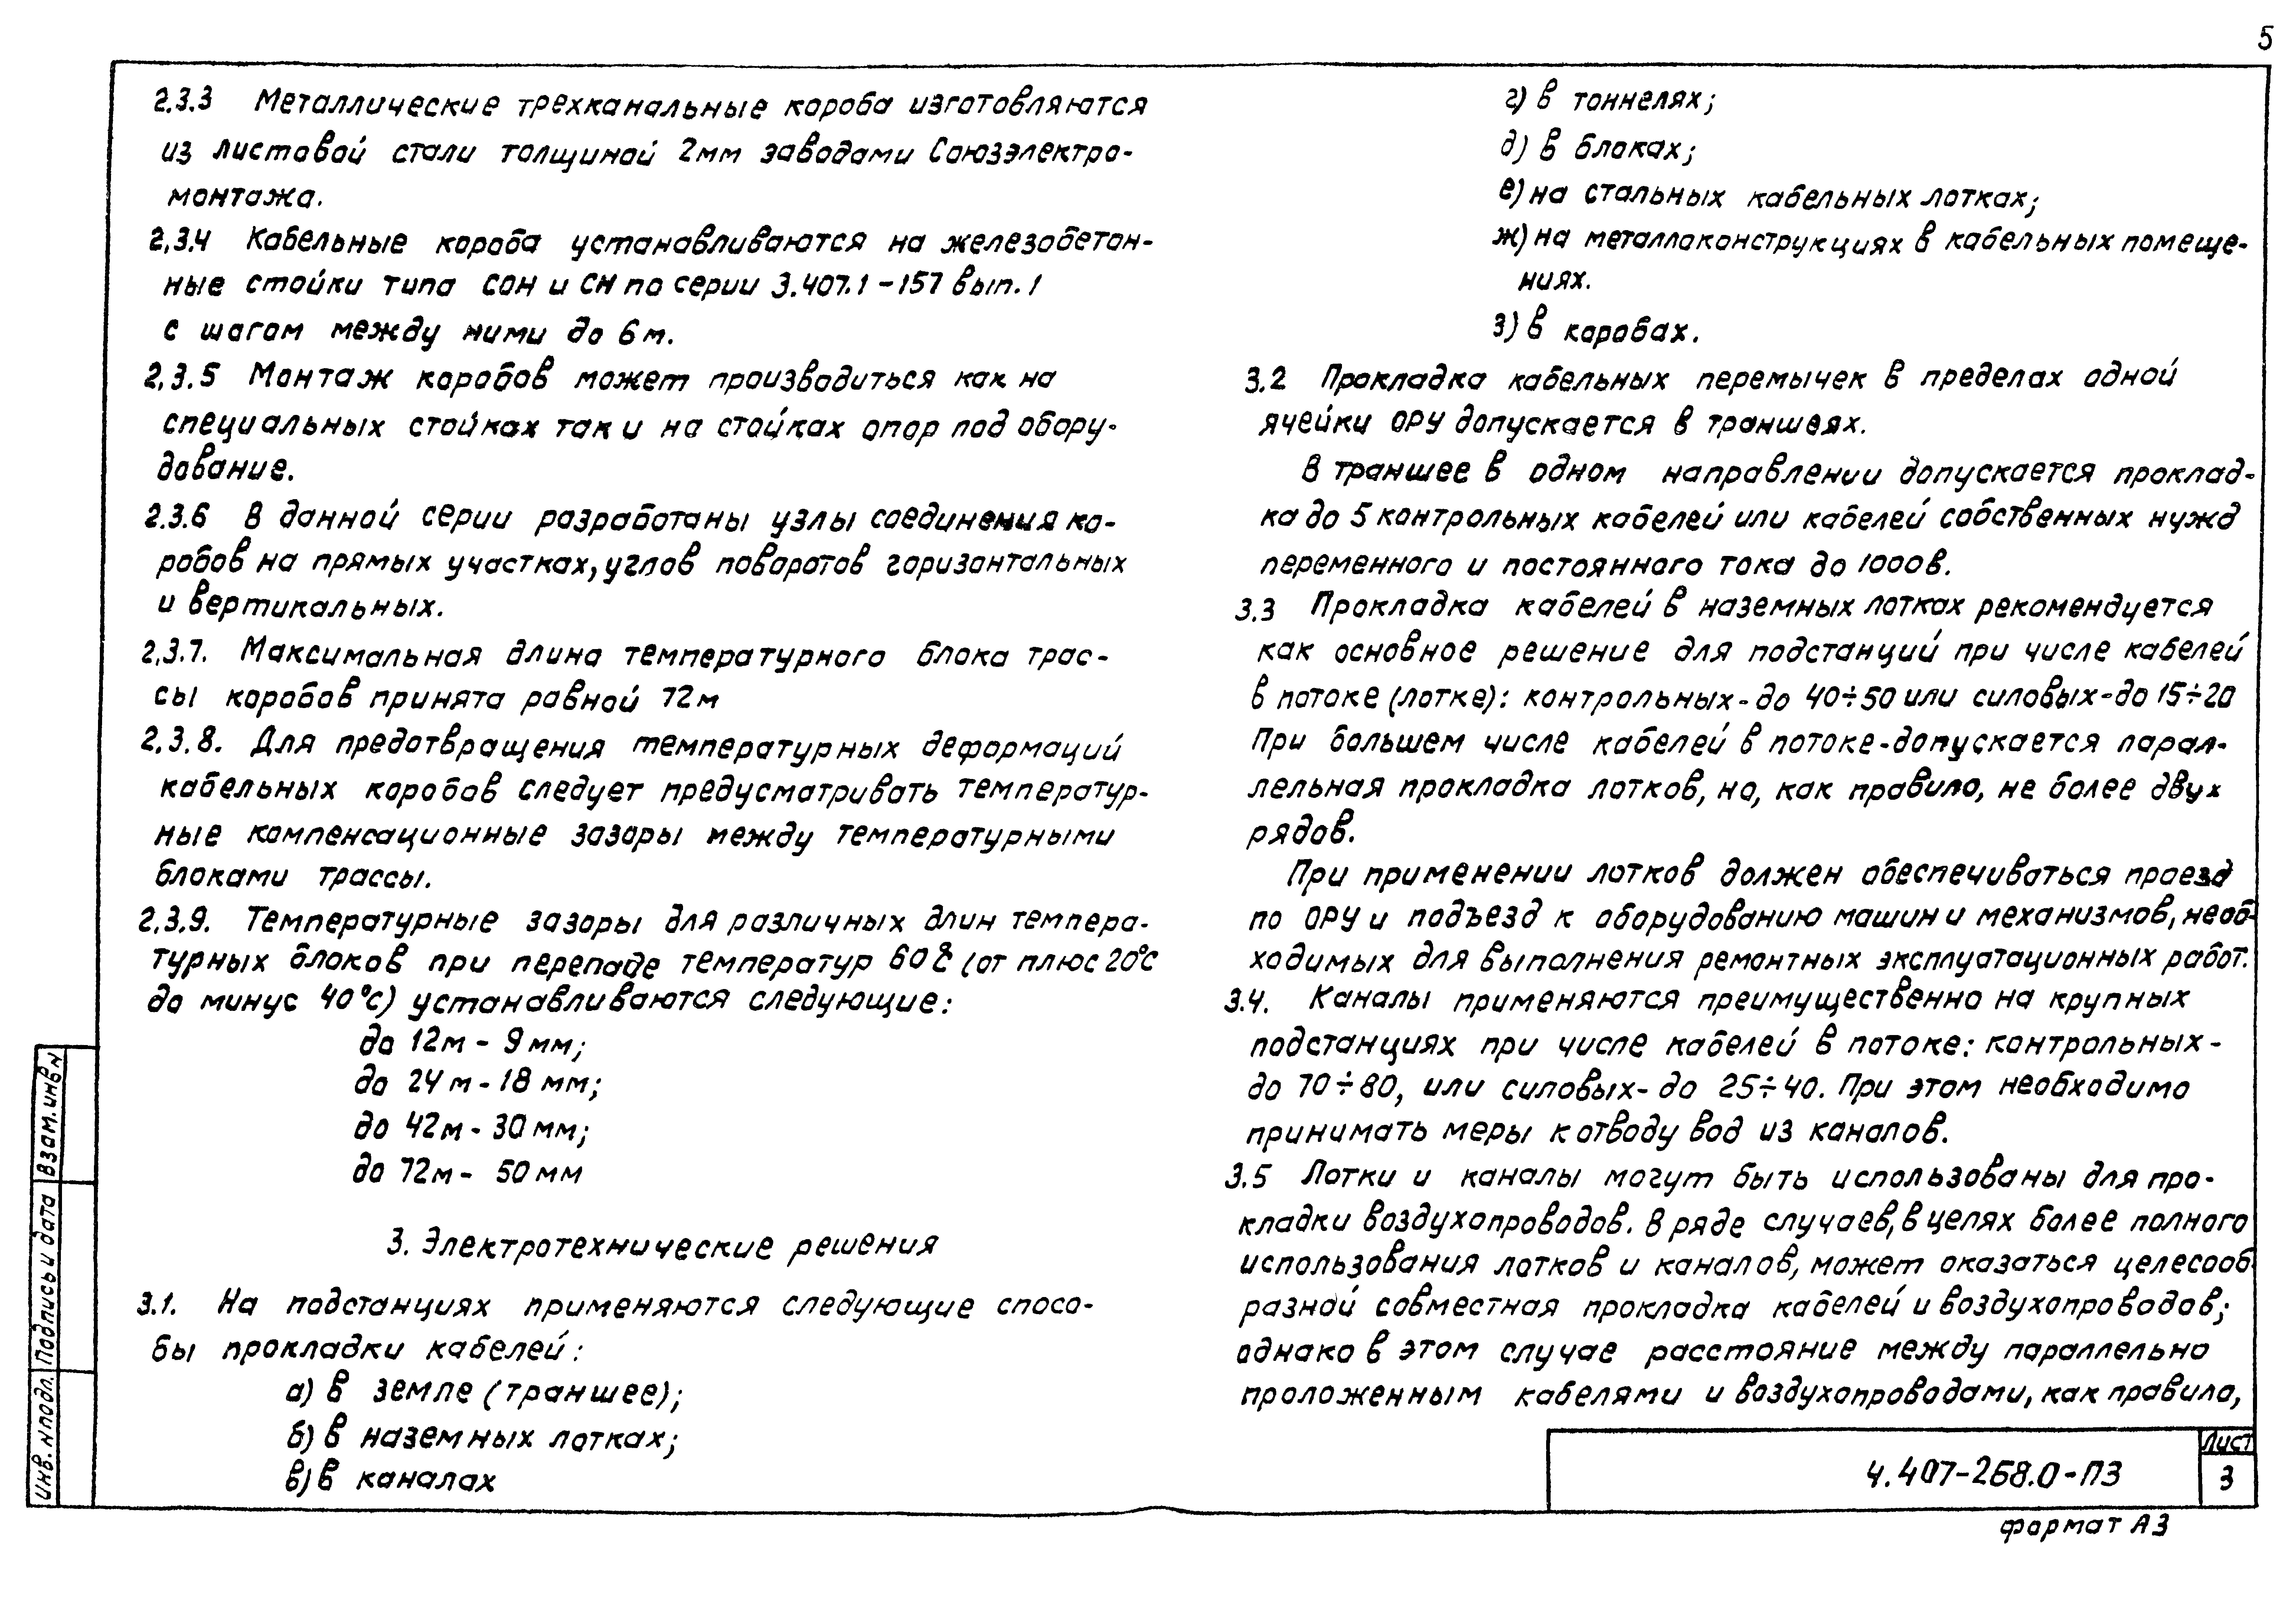 5
2.3.3 Металлические трехканальные короба изготовляются
из листовой стали толщиной 2мм заводами Союзэлектро-
монтажа.
2.3.4 Кабельные короба устанавливаются на железобетон-
ные стойки типа СОН и СН по серии 3.407.1-157 вып.1
с шагом между ними до 6м.
2.3.5 Монтаж коробов может производиться как на
специальных стойках так и на стойках опор под обору-
дование.
2.3.6 В данной серии разработаны узлы соединения ко-
робов на прямых участках, углов поворотов горизонтальных
и вертикальных.
2.3.7. Максимальная длина температурного блока трас-
сы коробов принята равной 72м
2.3.8. Для предотвращения температурных деформаций
кабельных коробов следует предусматривать температур-
ные компенсационные зазоры между температурными
блоками трассы.
2.3.9. Температурные зазоры для различных длин темпера-
турных блоков при перепаде температур 60°С (от плюс 20°С
до минус 40°С) устанавливаются следующие:
до 12м - 9мм;
до 24м - 18 мм;
до 42м - 30мм;
до 72м - 50мм
3. Электротехнические решения
3.1. На подстанциях применяются следующие спосо-
бы прокладки кабелей:
а) в земле (траншее);
б) в наземных лотках;
в) в каналах
г) в тоннелях;
д) в блоках;
е) на стальных кабельных лотках;
ж) на металлоконструкциях в кабельных помеще-
ниях.
з) в коробах.
3.2 Прокладка кабельных перемычек в пределах одной
ячейки ОРУ допускается в траншеях.
В траншее в одном направлении допускается проклад-
ка до 5 контрольных кабелей или кабелей собственных нужд
переменного и постоянного тока до 1000в.
3.3 Прокладка кабелей в наземных лотках рекомендуется
как основное решение для подстанций при числе кабелей
в потоке (лотке): контрольных - до 40÷50 или силовых - до 15÷20
При большем числе кабелей в потоке - допускается парал-
лельная прокладка лотков, но, как правило, не более двух
рядов.
При применении лотков должен обеспечиваться проезд
по ОРУ и подъезд к оборудованию машин и механизмов, необ-
ходимых для выполнения ремонтных эксплуатационных работ.
3.4. Каналы применяются преимущественно на крупных
подстанциях при числе кабелей в потоке: контрольных -
до 70÷80, или силовых - до 25÷40. При этом необходимо
принимать меры к отводу вод из каналов.
3.5 Лотки и каналы могут быть использованы для про-
кладки воздухопроводов. В ряде случаев, в целях более полного
использования лотков и каналов, может оказаться целесооб
разной совместная прокладка кабелей и воздухопроводов;
однако в этом случае расстояние между параллельно
проложенным кабелями и воздухопроводами, как правило,
Инв. N подл. Подпись и дата Взам. инв N
4.407-268.0-ПЗ
Лист
3
формат А3